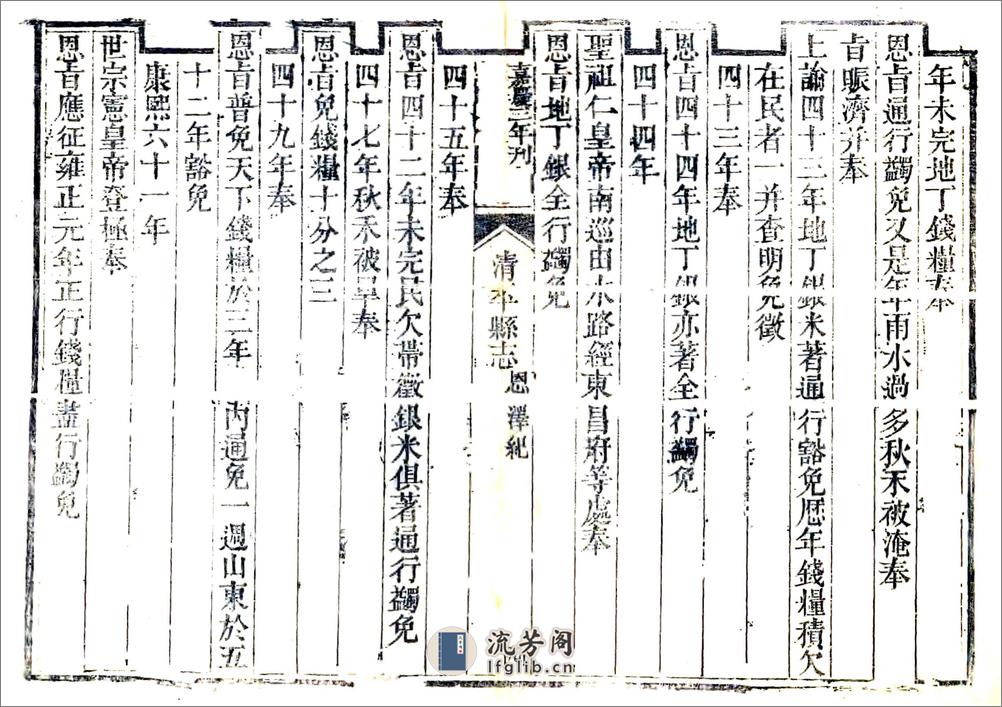 年未完地丁錢糧奉
恩旨通行蠲免又是年雨水過多秋禾被淹奉
旨賑濟并奉
上諭四十三年地丁銀米著通行豁免歴年錢糧積欠
在民者一并查明免徵
四十三年奉
恩旨四十四年地丁銀亦著全行蠲免
四十四年
聖祖仁皇帝南巡由水路經東昌府等處奉
恩旨地丁銀全行蠲免
嘉慶三年刋
清平縣志
恩澤紀
四十五年奉
恩旨四十二年未完民欠帶徵銀米俱著通行蠲免
四十七年秋禾被旱奉
恩旨免錢糧十分之三
四十九年奉
恩旨普免天下錢糧於三年內通免一週山東於五
十二年豁免
康熙六十一年
世宗憲皇帝登極奉
恩旨應征雍正元年正行錢糧盡行蠲免
流芳阁
lfglib.cn